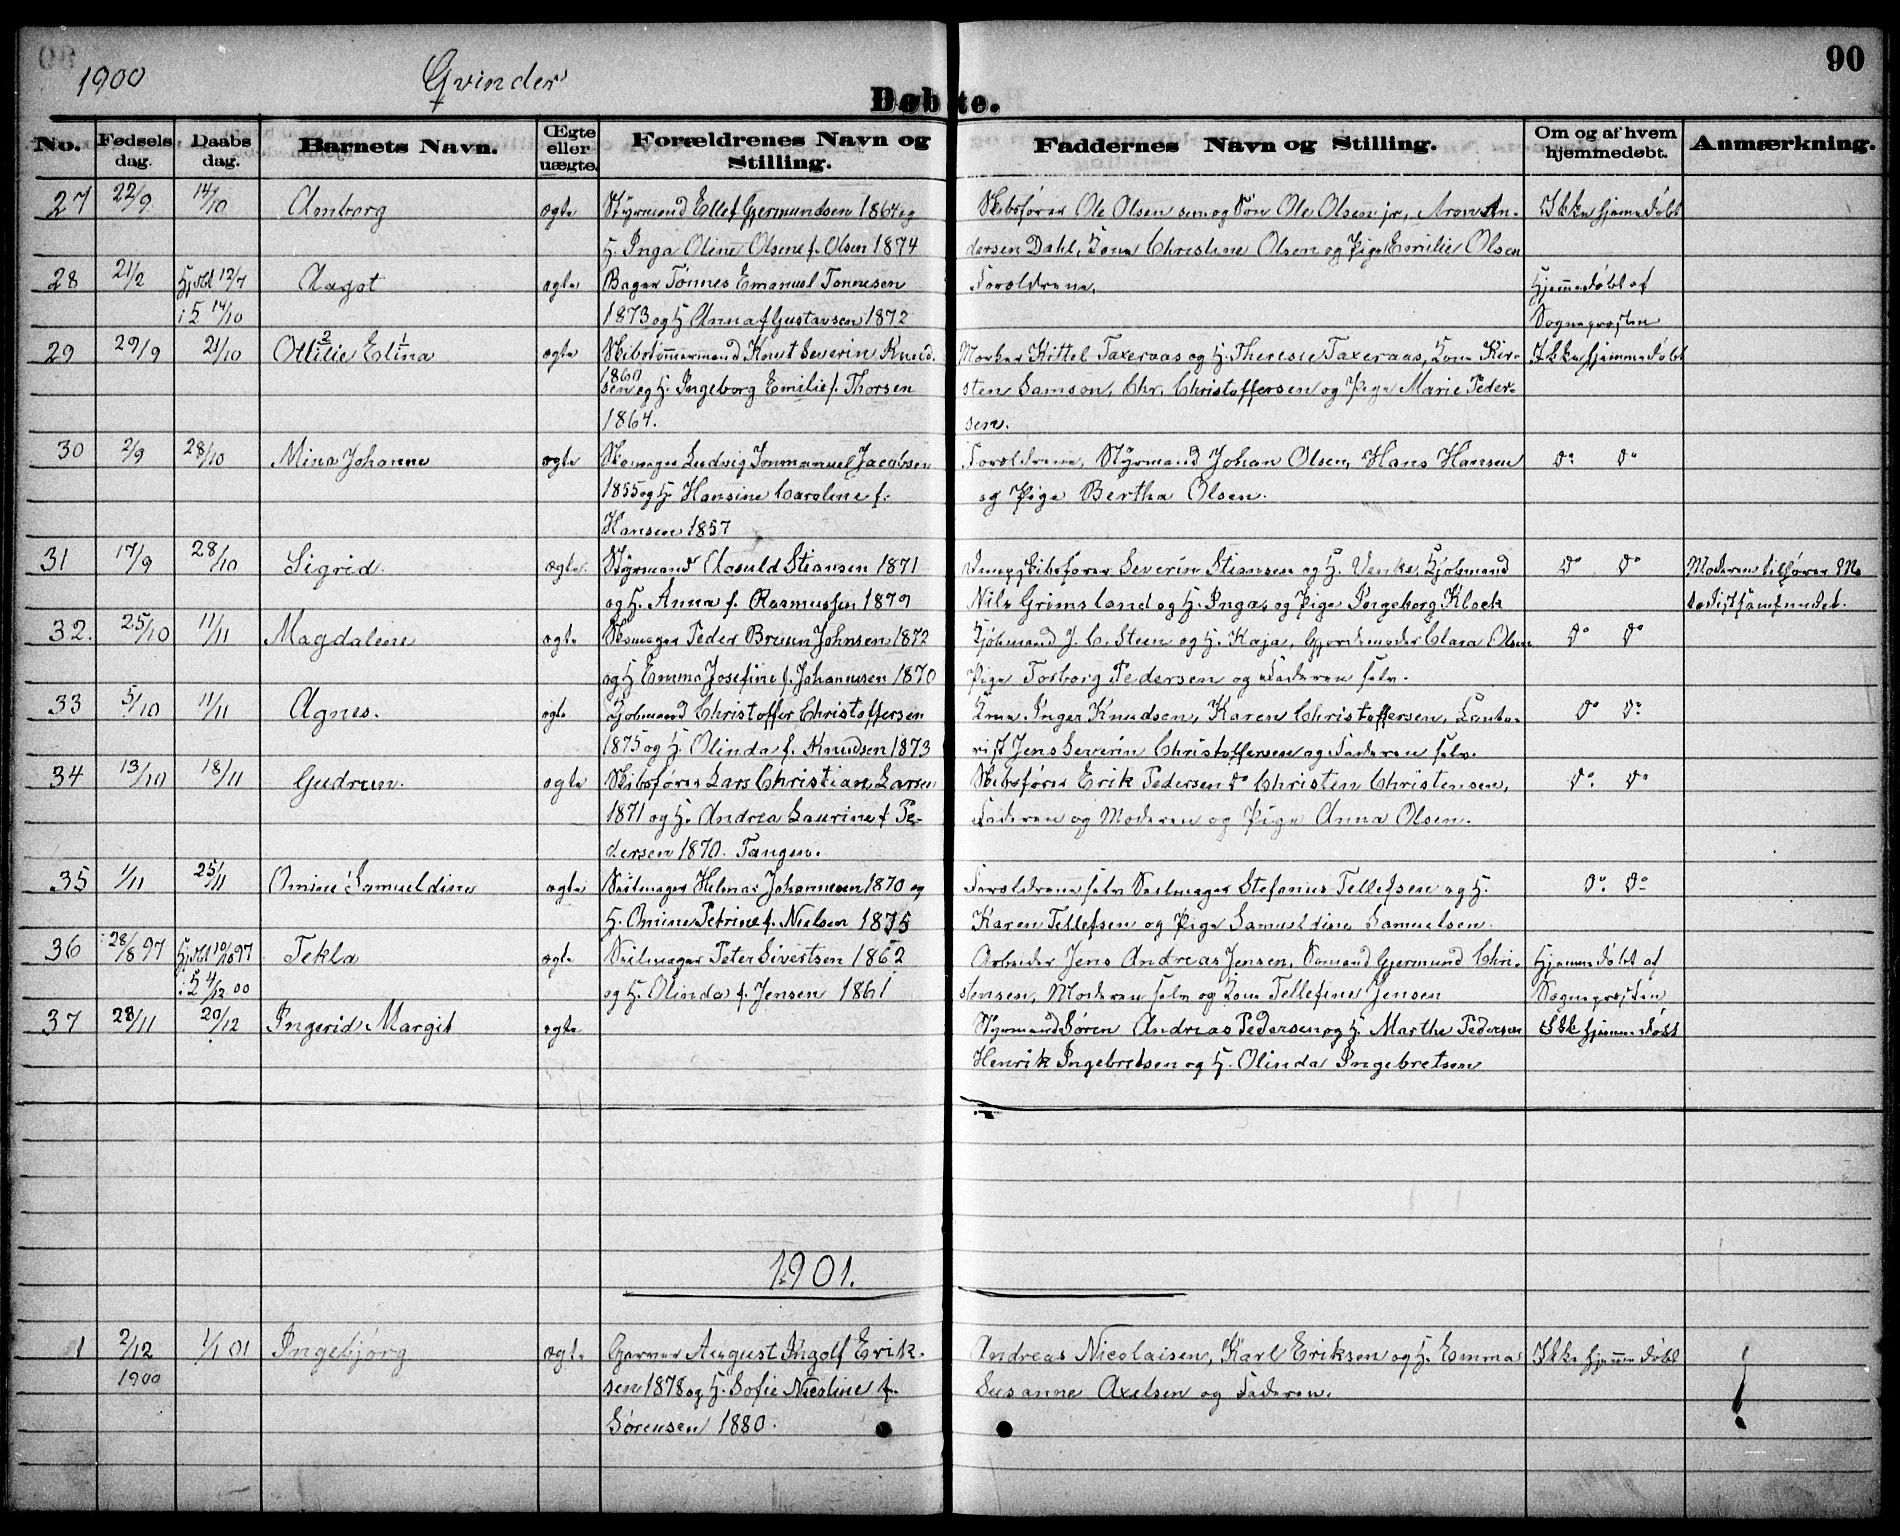 1900 Qvinder 90
Døbte.
No. Fødsels dag. Daabs dag. Barnets Navn. Ægte eller uægte. Forældrenes Navn og Stilling. Faddernes Navn og Stilling. Om og af hvem hjemmedøbt. Anmærkning.
27 22/9 14/10 Amborg ægte Styrmand Ellef Gjermundsen 1864 og Skibsfører Ole Olsen sen og Søn Ole Olsen jr, Aron An- Ikke hjemmedøbt
H. Inga Oline Olsen f. Olsen 1874 dersen Dahl, Kone Christine Olsen og Pige Emilie Olsen
28 21/2 Hjdbt 12/7 Aagot ægte Bager Tønnes Emanuel Tønnesen Forældrene. Hjemmedøbt af
i 5 14/10 1873 og H Anna f Gustavsen 1872 Sognepræsten
29 29/9 21/10 Otilie 2 Elina 1 ægte Skibstømmermand Knut Severin Knud- Kittel Taxeraas og H. Theresie Taxeraas, Kone Kir- Ikke hjemmedøbt
1860
sen og H. Ingeborg Emilie f. Thorsen sten Samson, Chr. Christoffersen og Pige Marie Peder-
1864. sen.
30 2/9 28/10 Mina Johanne ægte Skomager Ludvig Immanuel Jacobsen Forældrene, Styrmand Johan Olsen, Hans Hansen do do
1855 og H. Hansine Caroline f. og Pige Bertha Olsen.
Hansen 1857
31 17/9 28/10 Sigrid. ægte. Styrmand Aasuld Stiansen 1871 Dampskibsfører Severin Stiansen og H. Venke, Kjøbmand do do Moderen tilhører Me
og H. Anna f. Rasmussen 1879 Nils Grimsland og H. Inga og Pige Ingeborg Klock todistsamfundet.
32. 25/10 11/11 Magdalene ægte Skomager Peder Bruun Johnsen 1872 Kjøbmand J. C. Steen og H. Kaja, Gjordemoder Clara Olsen do do
og H Emma Josefine f. Johannesen 1870 Pige Torborg Pedersen og Faderen selv.
33 5/10 11/11 Agnes. ægte Kjøbmand Christoffer Christoffersen Kone Inger Knudsen, Karen Christoffersen, Konto- do do
1875 og H. Olinda f. Knudsen 1873 rist Jens Severin Christoffersen og Faderen selv.
34 13/10 18/11 Gudrun. ægte Skibsfører Lars Christian Larsen Skibsfører Erik Pedersen do Christen Christensen, do. do
1871 og H. Andrea Laurine f Pe- Faderen og Moderen og Pige Anna Olsen.
dersen 1870. Tangen.
35 1/11 25/11 Omine Samueldine ægte Seilmager Helmer Johannesen 1870 og Forældrene selv Seilmager Stefanus Tellefsen og H. do. do
H. Omine Petrine f. Nielsen 1875 Karen Tellefsen og Pige Samueldine Samuelsen.
36 28/8 97 Hjdbt 10/10 97 Tekla ægte Seilmager Peter Sivertsen 1862 Arbeider Jens Andreas Jensen, Sømand Gjermund Chri- Hjemmedøbt af
i 5 4/12 00 og H. Olinda f. Jensen 1861 stensen, Moderen selv og Kone Tellefine Jensen Sogneprästen
37 28/11 20/12 Ingerid Margit ægte Styrmand Søren Andreas Pedersen og H. Marthe Pedersen Ikke hjemmedøbt
Henrik Ingebretsen og H. Olinda Ingebretsen
1901.
1 2/12 1/1 01 Ingebjørg ægte Garver August Ingolf Erik- Andreas Nicolaisen, Karl Eriksen og H. Emma Ikke hjemmedøbt
1900 sen 1878 og H. Sofie Nicoline f. Susanne Axelsen og Faderen.
Sørensen 1880.